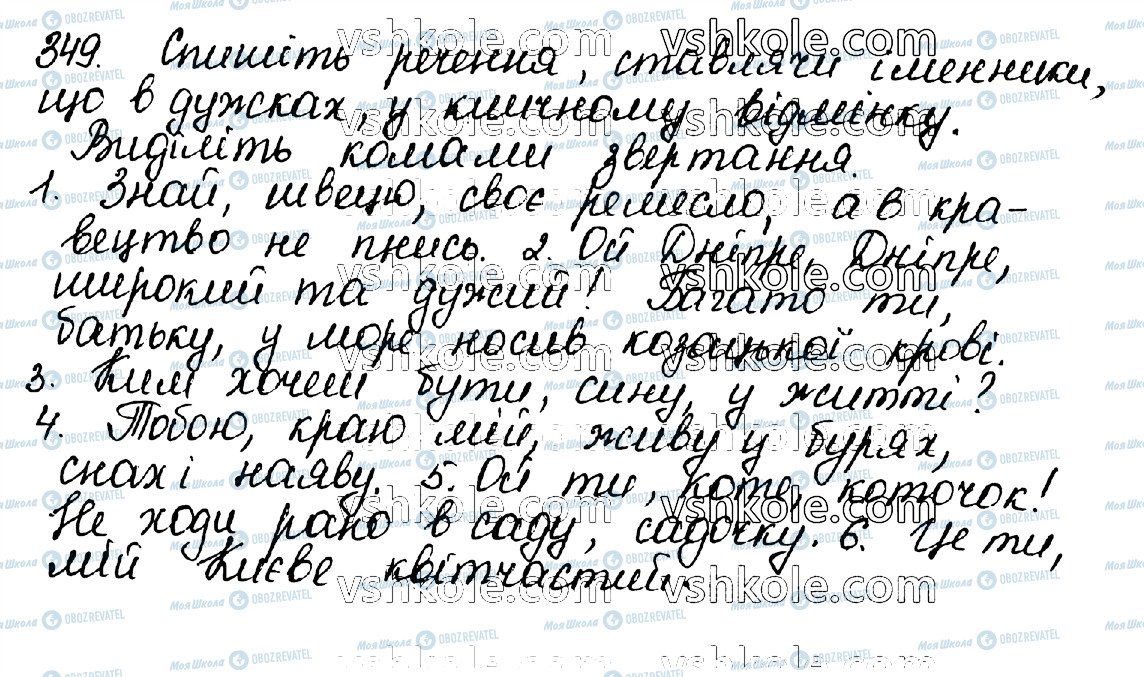 349. Спишіть речення, ставлячи іменники,
що в дужках, у кличному відмінку.
Виділіть комами звертання.
1. Знай, швецю, своє ремесло, а в кра-
вецтво не пнись. 2. Ой Дніпре, Дніпре,
широкий та дужий! Багато ти,
батьку, у море носив козацької крові.
3. Ким хочеш бути, сину, у житті?
4. Тобою, краю мій, живу у бурях,
снах і наяву. 5. Ой ти, коте, коточок!
Не ходи рано в саду, садочку. 6. Це ти,
мій Києве квітчастий.